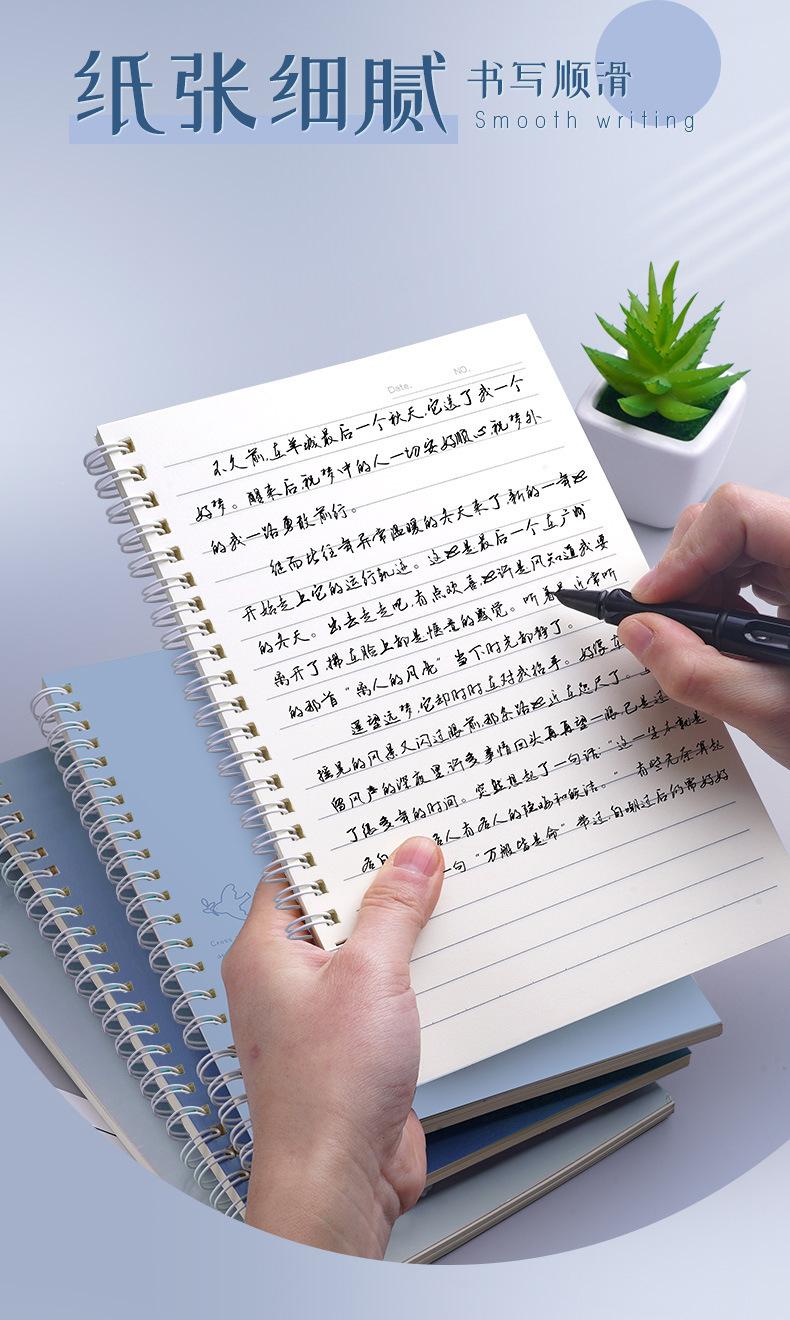 纸张细腻
书写顺滑
Smooth writing
Date.
NO.
不久前,在羊城最后一个秋天,它送了我一个
好梦。醒来后祝梦中的人一切安好顺心祝梦外
的我一路勇敢前行。
继而比往年异常温暖的冬天来了新的一年
开始走上它的运行轨迹。这是最后一个在广州
的冬天。出去走走吧,有点欢喜许是风知道我要
离开了拂在脸上都是惬意的感觉。听着 近常听
的那首“离人的风亮”当下时光都静了。
遥望远梦,它却时时在对我招手。好像在
摇晃的风景又闪过眼前,那条路 近在咫尺了。
留风声的深夜里,许多事情回头再再望一眼已是过
了很多年的时间。突然想起了一句话:“这一生本就是
各自 各人有各人的 和 。”有些无奈
一句“万般皆是命” 自嘲过后仍需好好
Cross